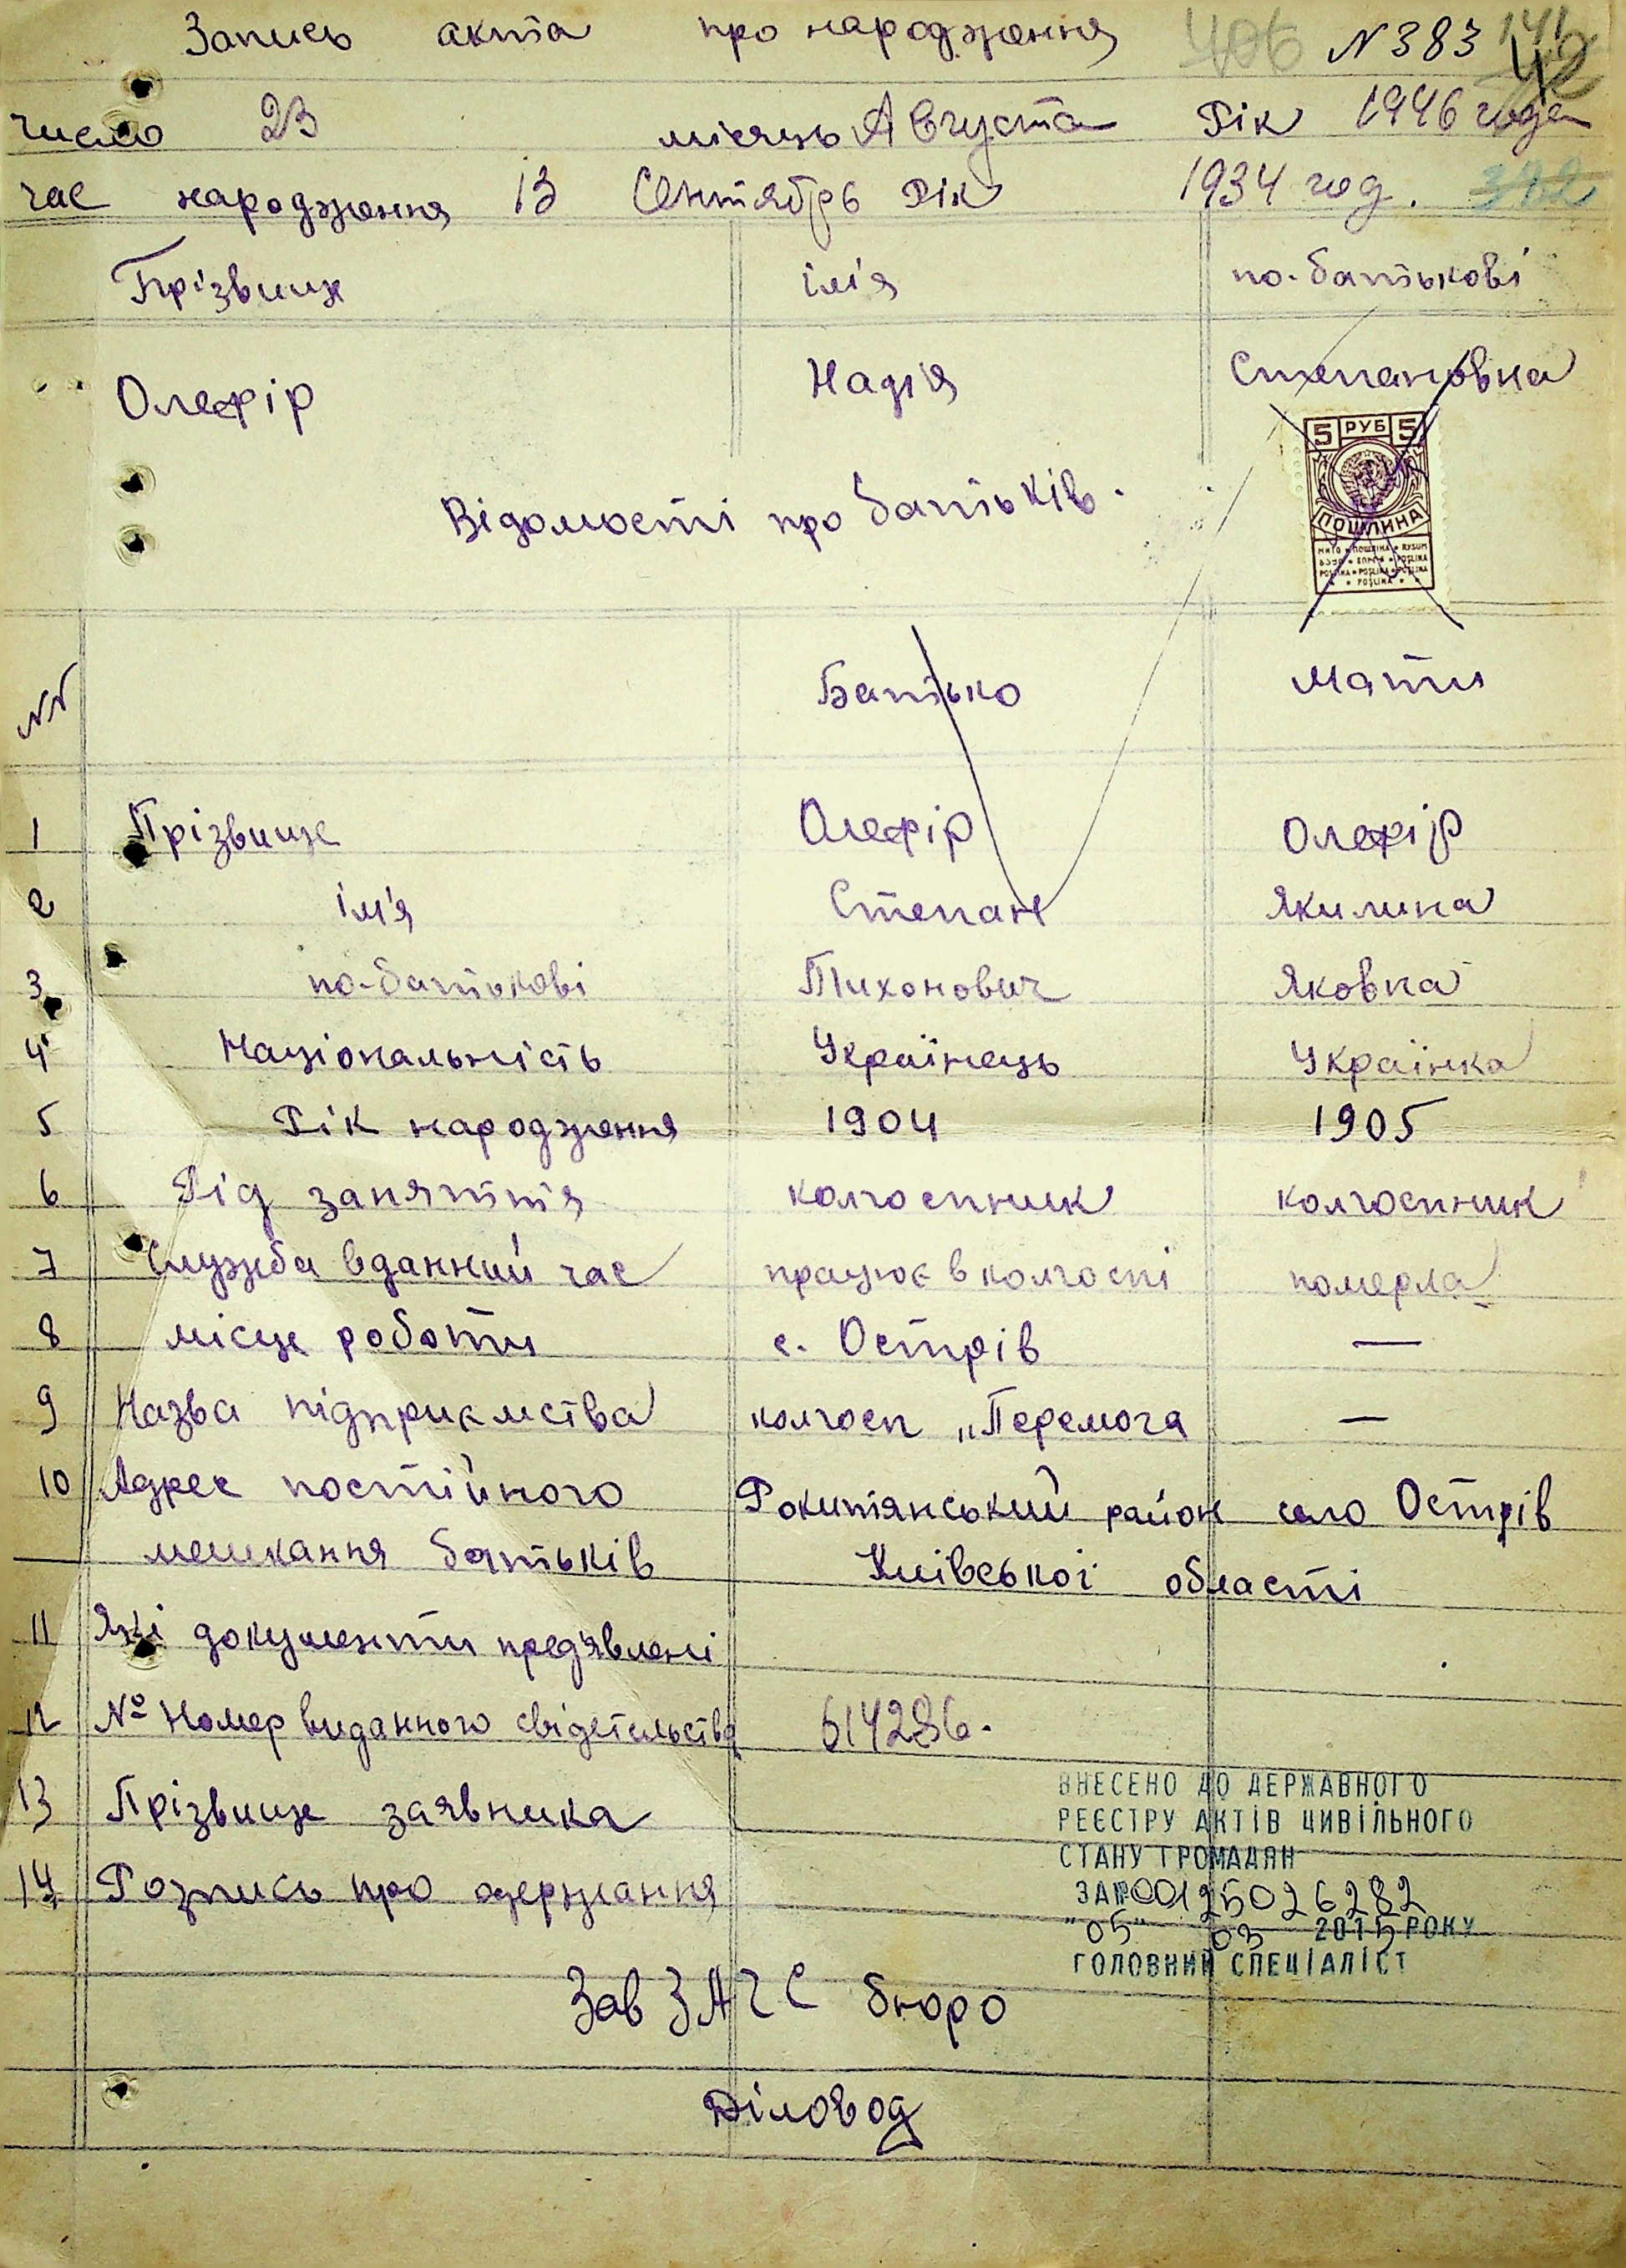 Запись акта про народження 406 N 383 141 42
число 23 місяць Августа Рік 1946 года
час народження 13 Сентябрь Рік 1934 год. 382
Прізвище ім'я по-батькові
Олефір Надія Степановна
5 РУБ 5
ПОШЛИНА
Відомості про батьків.
NN Батько Мати
1 Прізвище Олефір Олефір
2 ім'я Степан Якилина
3 по-батькові Тихонович Яковна
4 Національність Українець Українка
5 Рік народження 1904 1905
6 Рід заняття колгоспник колгоспник
7 Служба в данний час працює в колгоспі померла
8 місце роботи с. Острів —
9 Назва підприємства колгосп „Перемога —
10 Адрес постійного Рокитянський район село Острів
мешкання батьків Київської області
11 Які документи предявлені
12 № Номер виданного свідетельства 614286.
13 Прізвище заявника
14 Розпись про одержання
ВНЕСЕНО ДО ДЕРЖАВНОГО
РЕЄСТРУ АКТІВ ЦИВІЛЬНОГО
СТАНУ ГРОМАДЯН
ЗА №00125026282
"05" 03 2015 РОКУ
ГОЛОВНИЙ СПЕЦІАЛІСТ
Зав ЗАГС бюро
Діловод